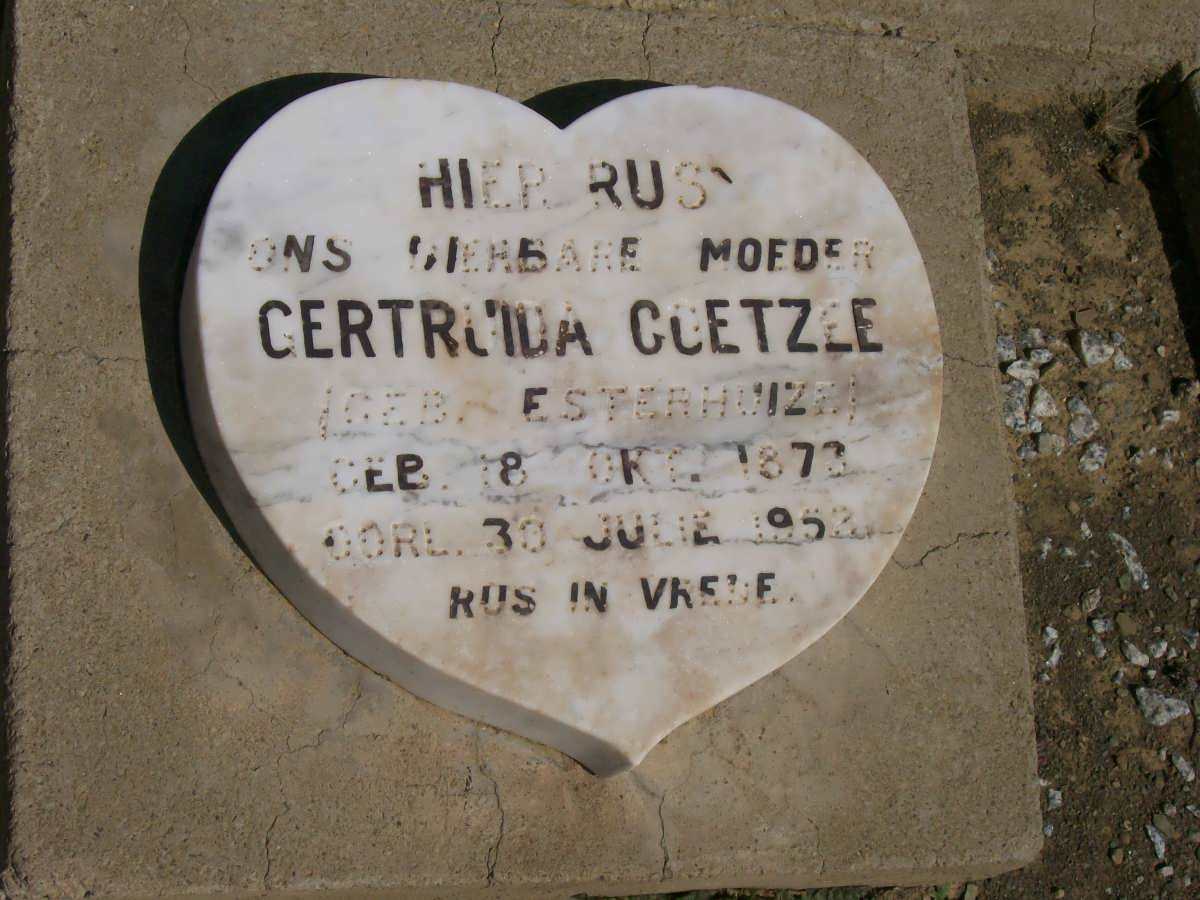 HIER RUS
ONS DIERBARE MOEDER
GERTRUIDA COETZEE
(GEB. ESTERHUIZE)
GEB. 18 OKT. 1873
OORL. 30 JULIE 1952.
RUS IN VREDE.